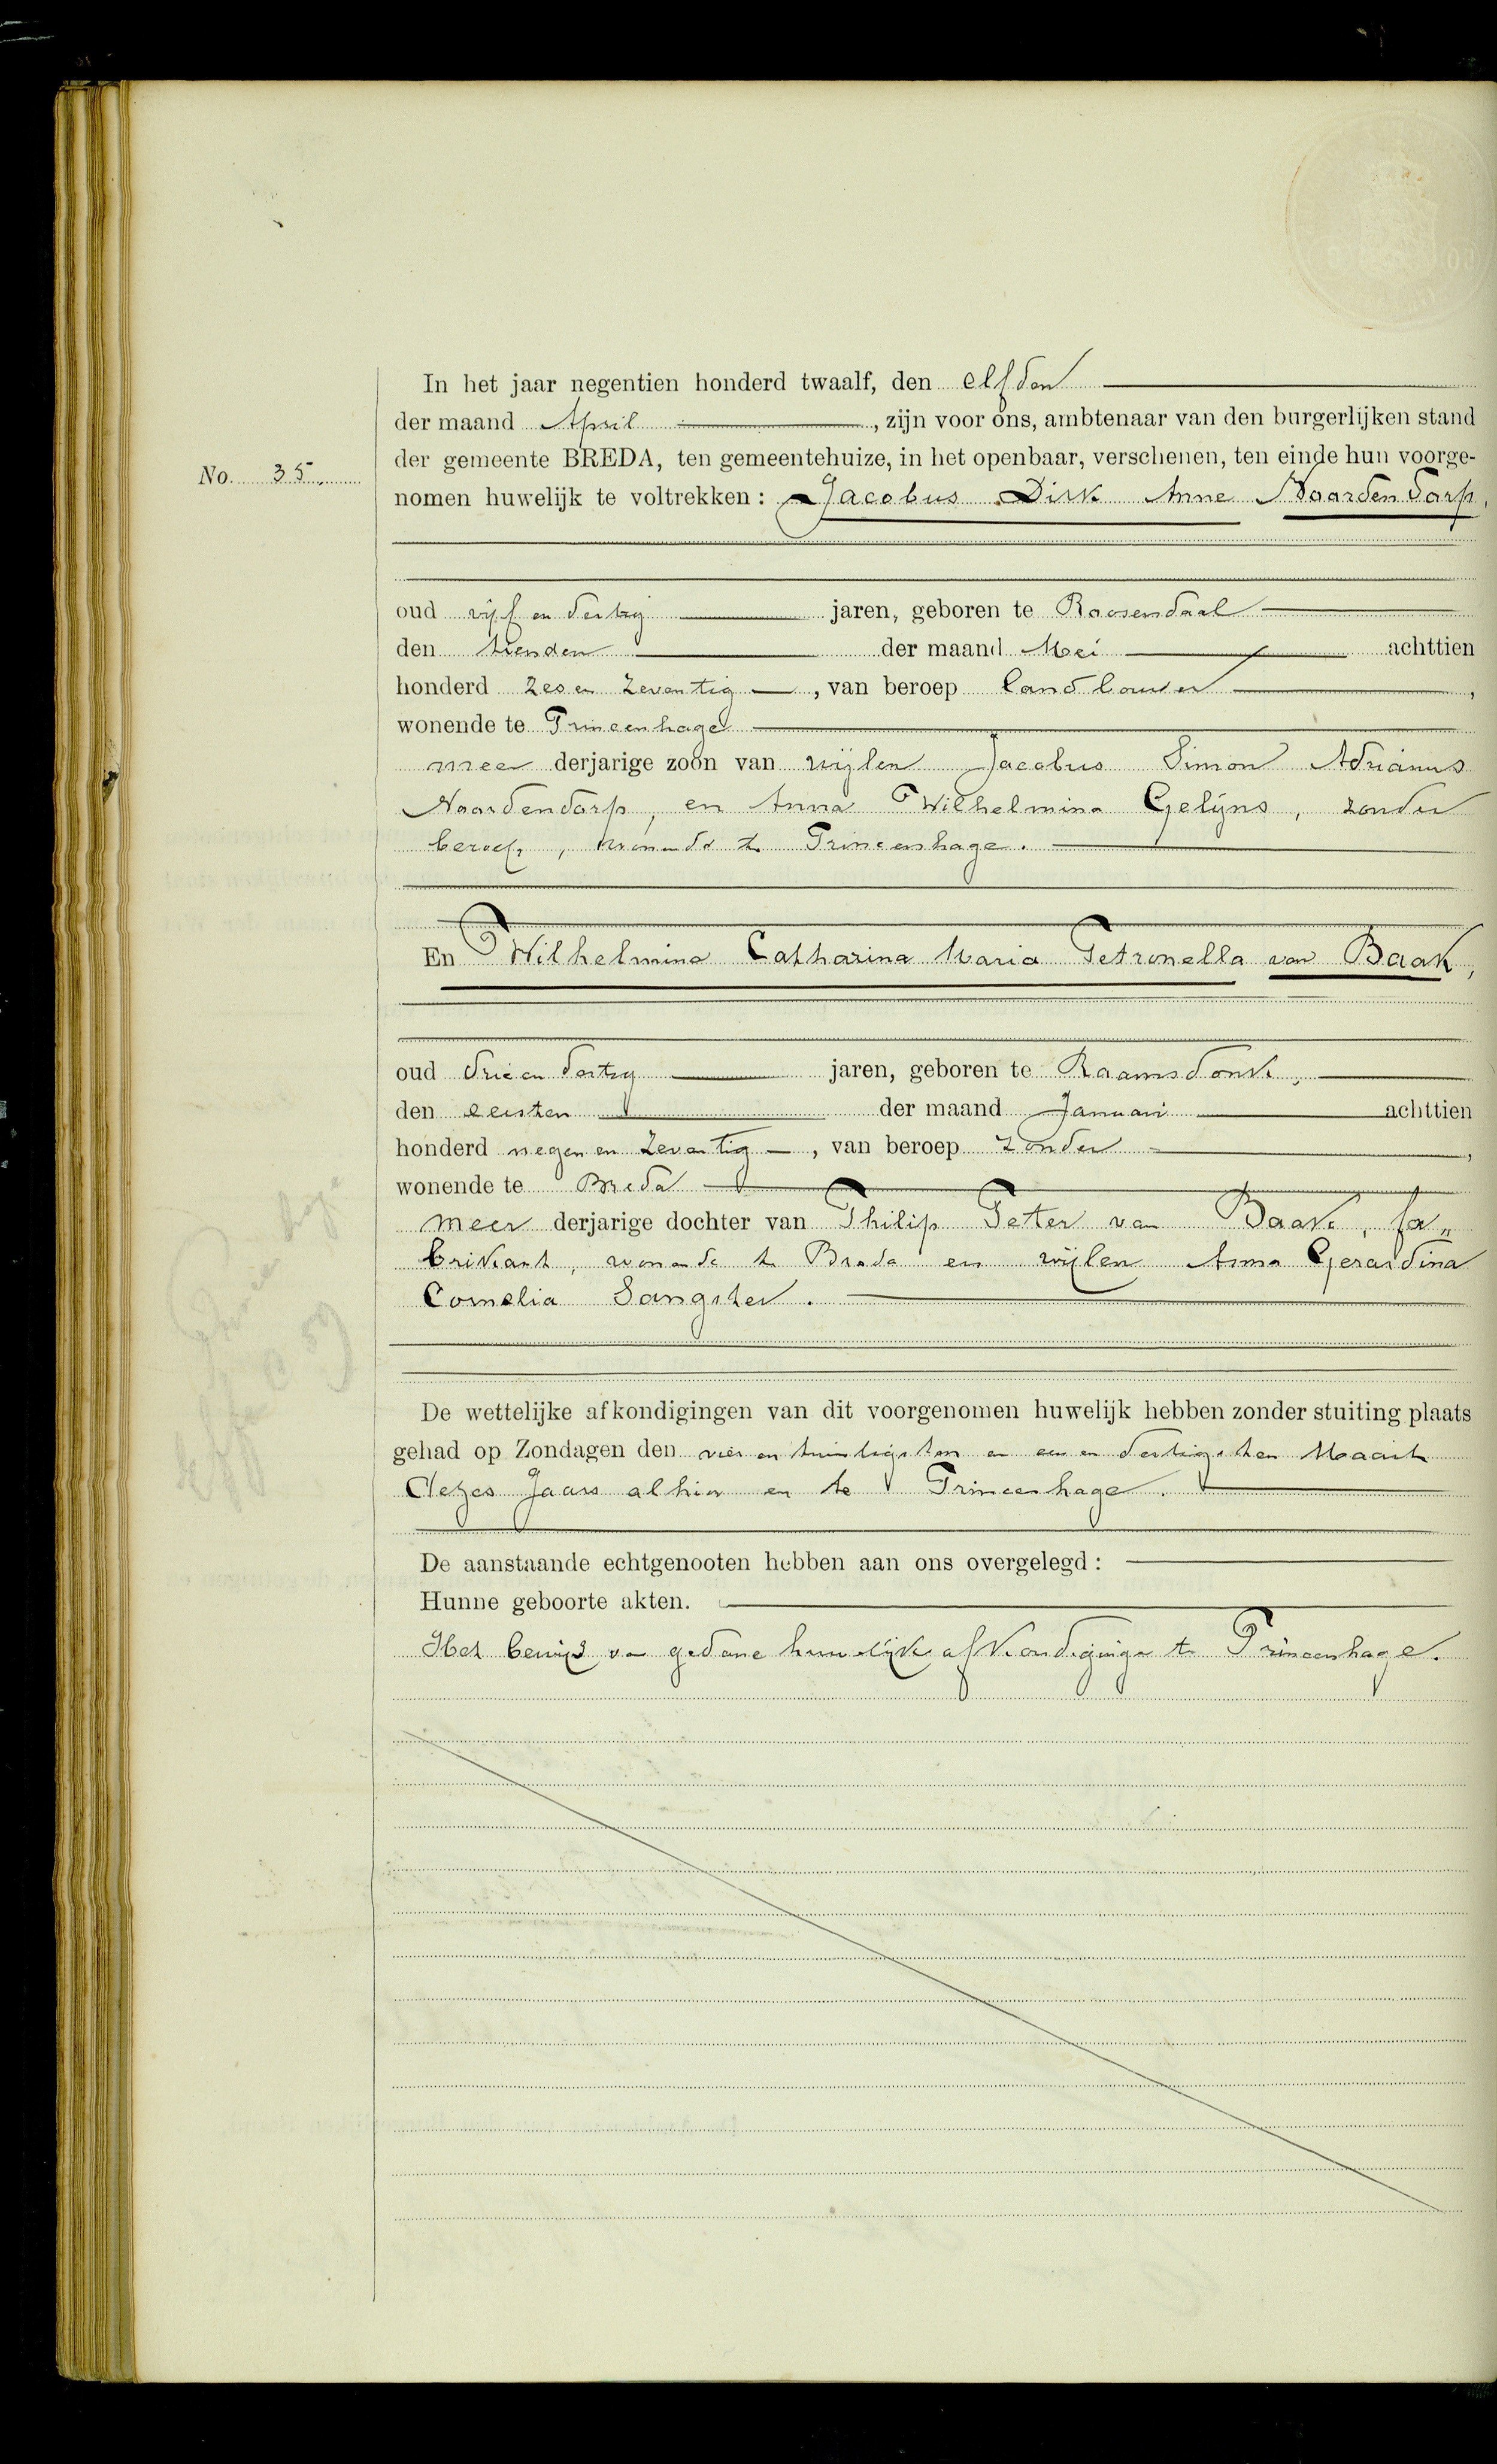 In het jaar negentien honderd twaalf, den elfden
der maand April, zijn voor ons, ambtenaar van den burgerlijken stand
der gemeente BREDA, ten gemeentehuize, in het openbaar, verschenen, ten einde hun voorge-
No. 35.
nomen huwelijk te voltrekken: Jacobus Dirk Anne Naardendorp,
oud vijf en dertig jaren, geboren te Roosendaal
den tienden der maand Mei achttien
honderd zes en zeventig, van beroep landbouwer,
wonende te Princenhage
meerderjarige zoon van wijlen Jacobus Simon Adrianus
Naardendorp, en Anna Wilhelmina Gelijns, zonder
beroep, wonende te Princenhage.
En Wilhelmina Catharina Maria Petronella van Baak,
oud drie en dertig jaren, geboren te Raamsdonk,
den eersten der maand Januari achttien
honderd negen en zeventig, van beroep zonder,
wonende te Breda
meerderjarige dochter van Philip Peter van Baak, fa„
brikant, wonende te Breda en wijlen Anna Gerardina
Cornelia Sangster.
De wettelijke afkondigingen van dit voorgenomen huwelijk hebben zonder stuiting plaats
gehad op Zondagen den vier en twintigsten en een en dertigsten Maart
dezes jaars alhier en te Princenhage.
De aanstaande echtgenooten hebben aan ons overgelegd:
Hunne geboorte akten.
Het bewijs van gedane huwelijksafkondigingen te Princenhage.